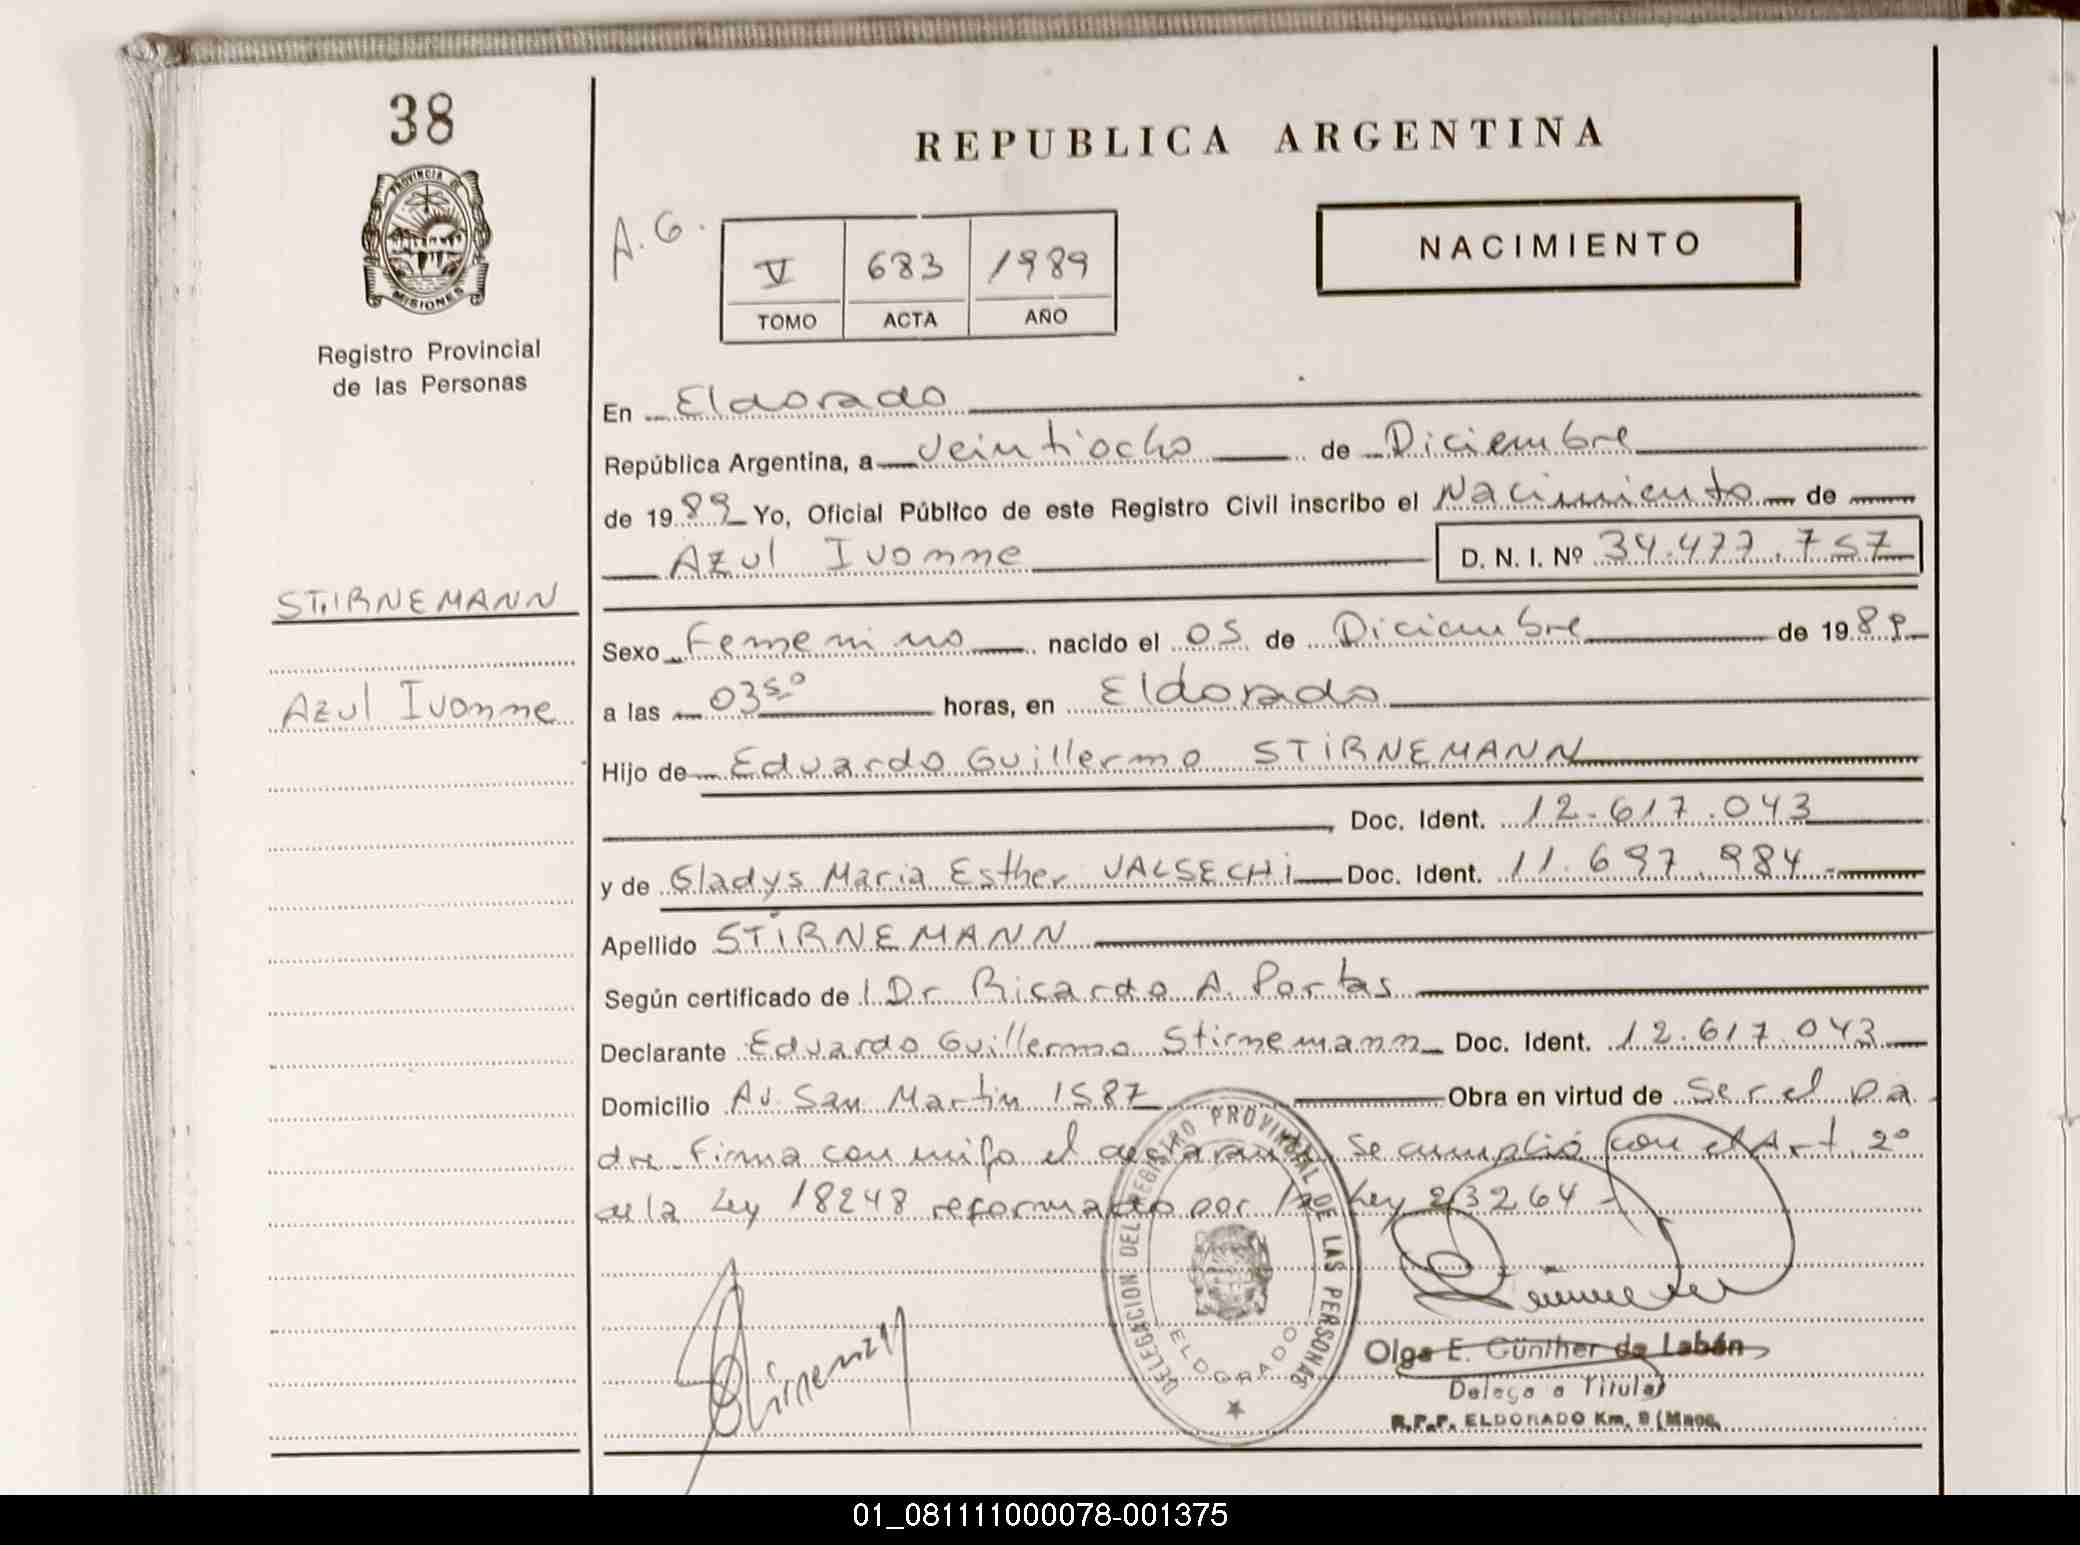 38
PROVINCIA DE
MISIONES
Registro Provincial
de las Personas
STIRNEMANN
Azul Ivonne
REPUBLICA ARGENTINA
A. G.
V 683 1989
TOMO ACTA AÑO
NACIMIENTO
En Eldorado
República Argentina, a veintiocho de Diciembre
de 1989 Yo, Oficial Público de este Registro Civil inscribo el Nacimiento de
Azul Ivonne D. N. I. Nº 34.477.757
Sexo Femenino nacido el 05 de Diciembre de 1989
a las 03⁵⁰ horas, en Eldorado
Hijo de Eduardo Guillermo STIRNEMANN
Doc. Ident. 12.617.043
y de Gladys Maria Esther VALSECHI Doc. Ident. 11.697.984.-
Apellido STIRNEMANN
Según certificado de Dr Ricardo A. Portas
Declarante Eduardo Guillermo Stirnemann Doc. Ident. 12.617.043
Domicilio Av. San Martin 1587 Obra en virtud de ser el pa
dre Firma conmigo el declarante, se cumplió con el Art. 2º
de la Ley 18248 reformado por la Ley 23264-
DELEGACION DEL REGISTRO PROVINCIAL DE LAS PERSONAS
ELDORADO
Olga E. Günther de Labán
Delega a Titular
R.P.P. ELDORADO Km. 9 (Mnes.
01_081111000078-001375